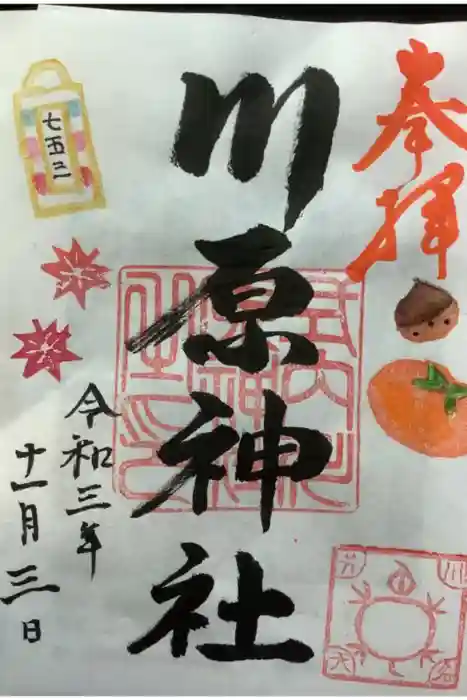 奉拝
川原神社
令和三年
十一月三日
七五三